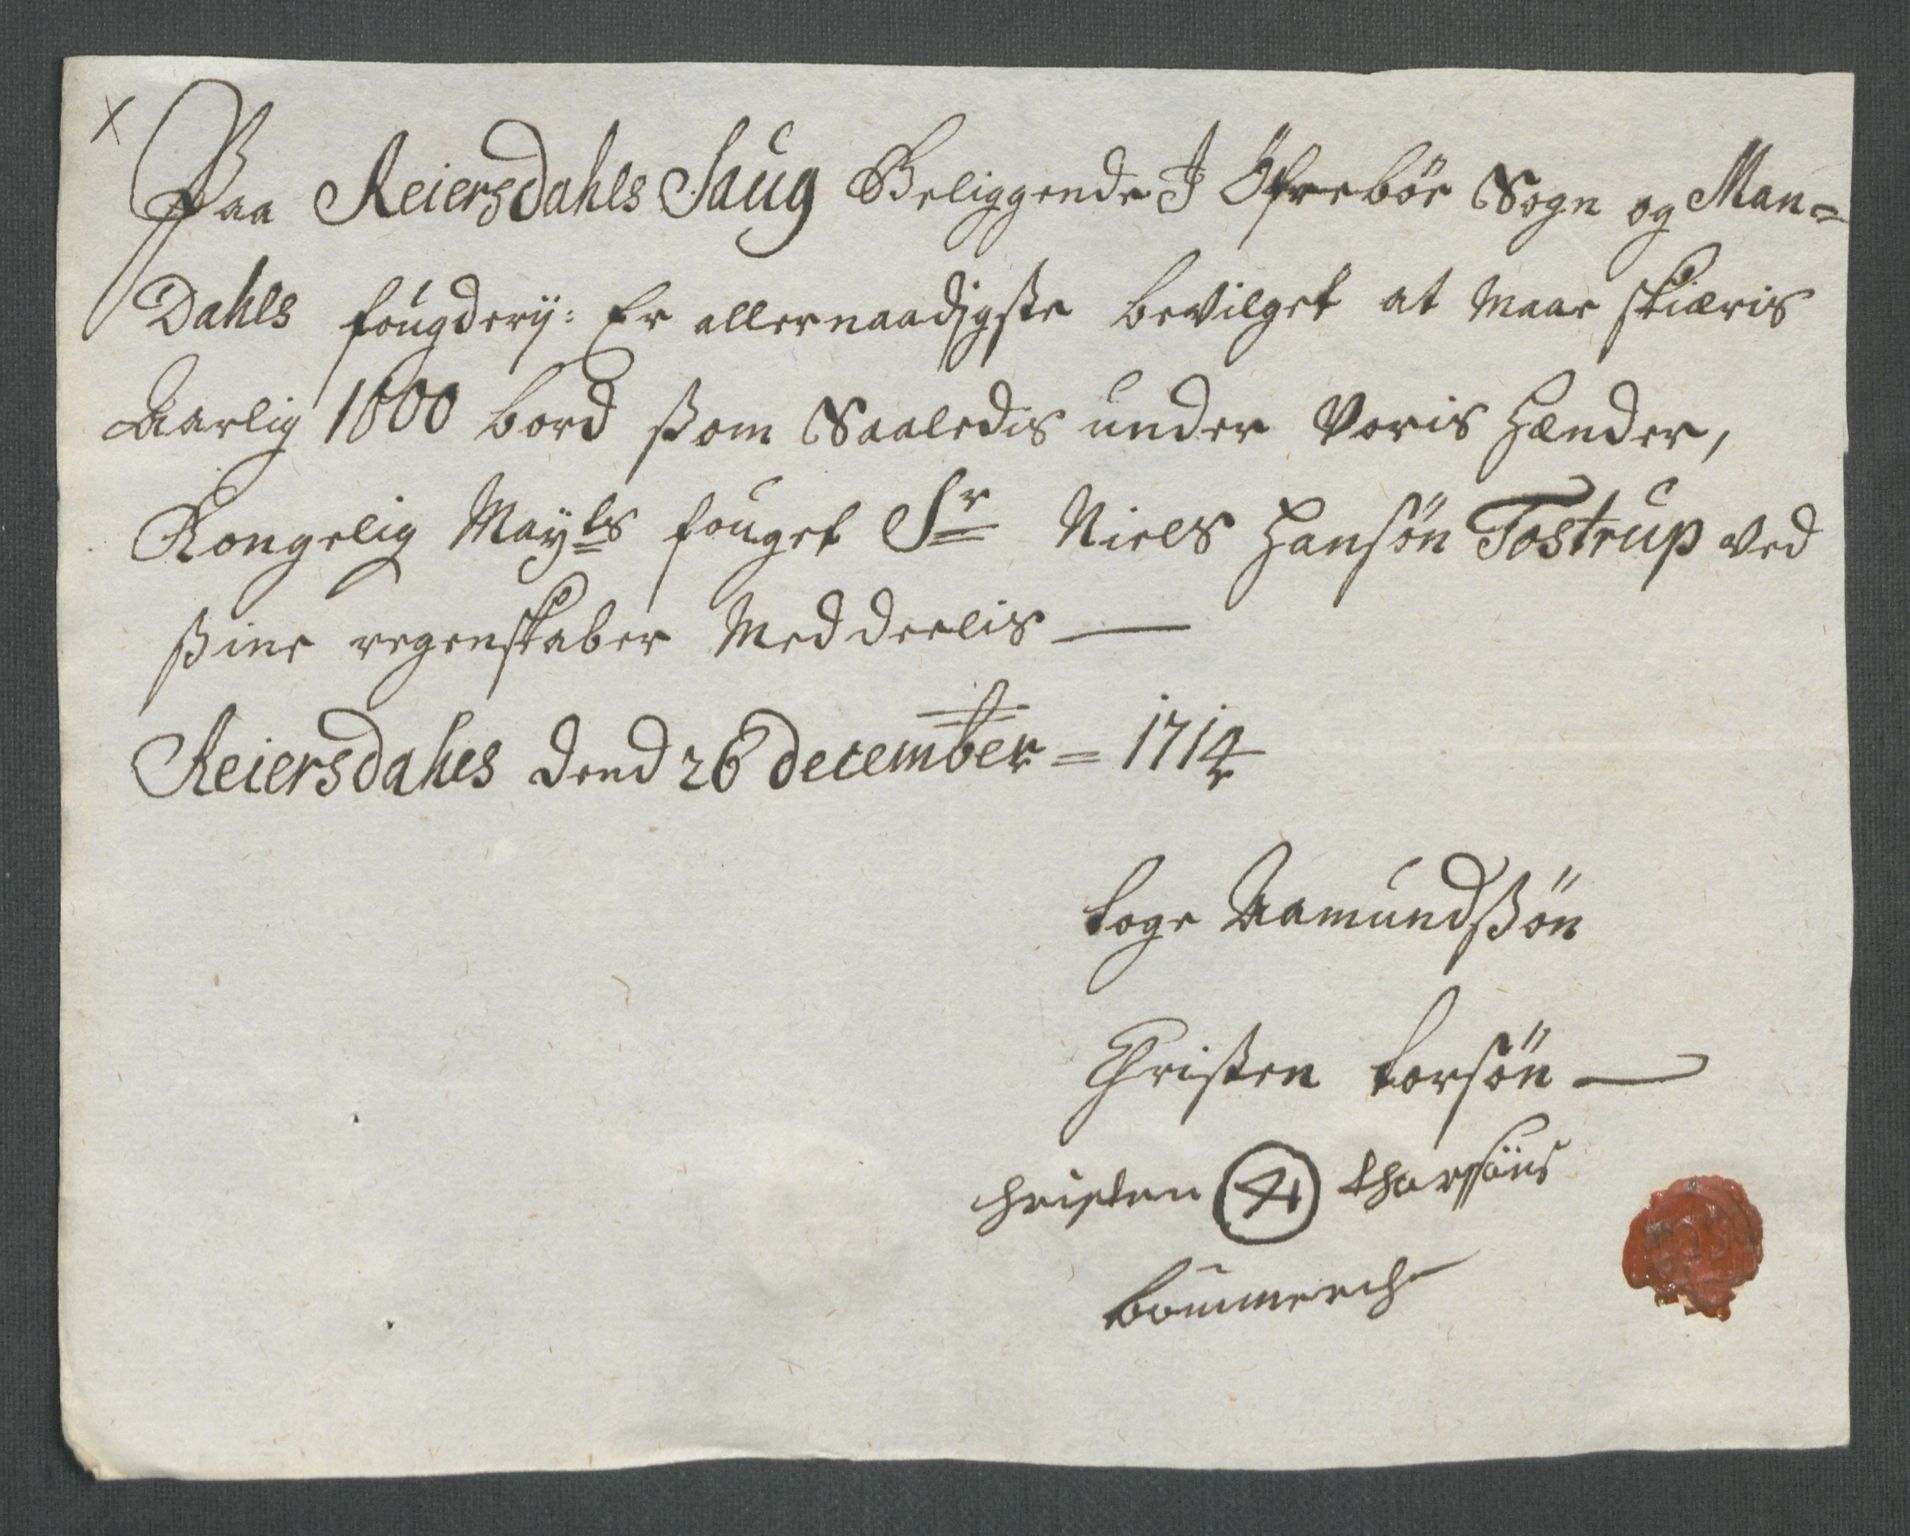 x
Paa Reiersdahls Saug Beliggende I Öfreböe Sogn og Man=
Dahls fougderij: Er allernaadigste bevilget at maae skiæris
Aarlig 1800 bord som Saaledis under Voris Hænder,
Kongelig Mayts fouget Sr Niels Hansön Tostrup ved
sine regenskaber Meddeelis —
Reiersdahls dend 26 december = 1714
toge Aamundsön
Christen torsön —
christen tharssöns
boummerch